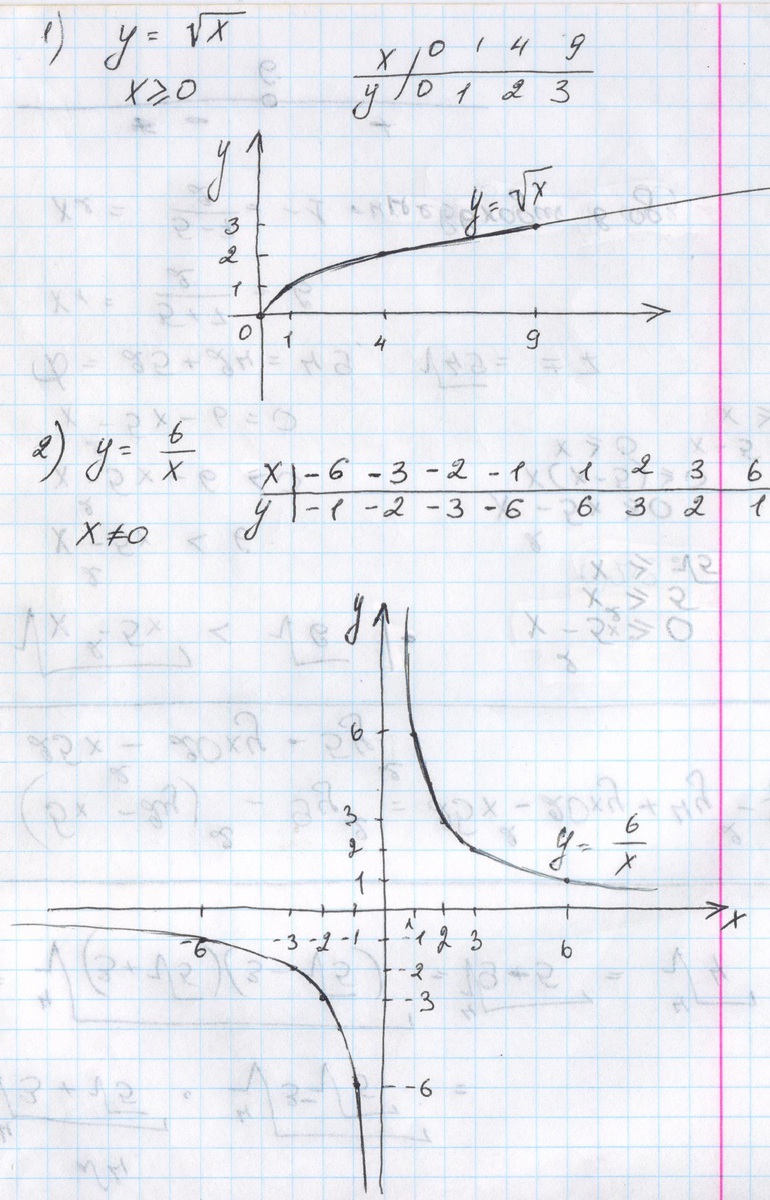 1) y = √x
x ≥ 0
x 0 1 4 9
y 0 1 2 3
y
y = √x
3
2
1
0 1 4 9
2) y = 6/x
x ≠ 0
x -6 -3 -2 -1 1 2 3 6
y -1 -2 -3 -6 6 3 2 1
y
6
3
2
1
y = 6/x
x
-6 -3 -2 -1 1 2 3 6
-1
-2
-3
-6